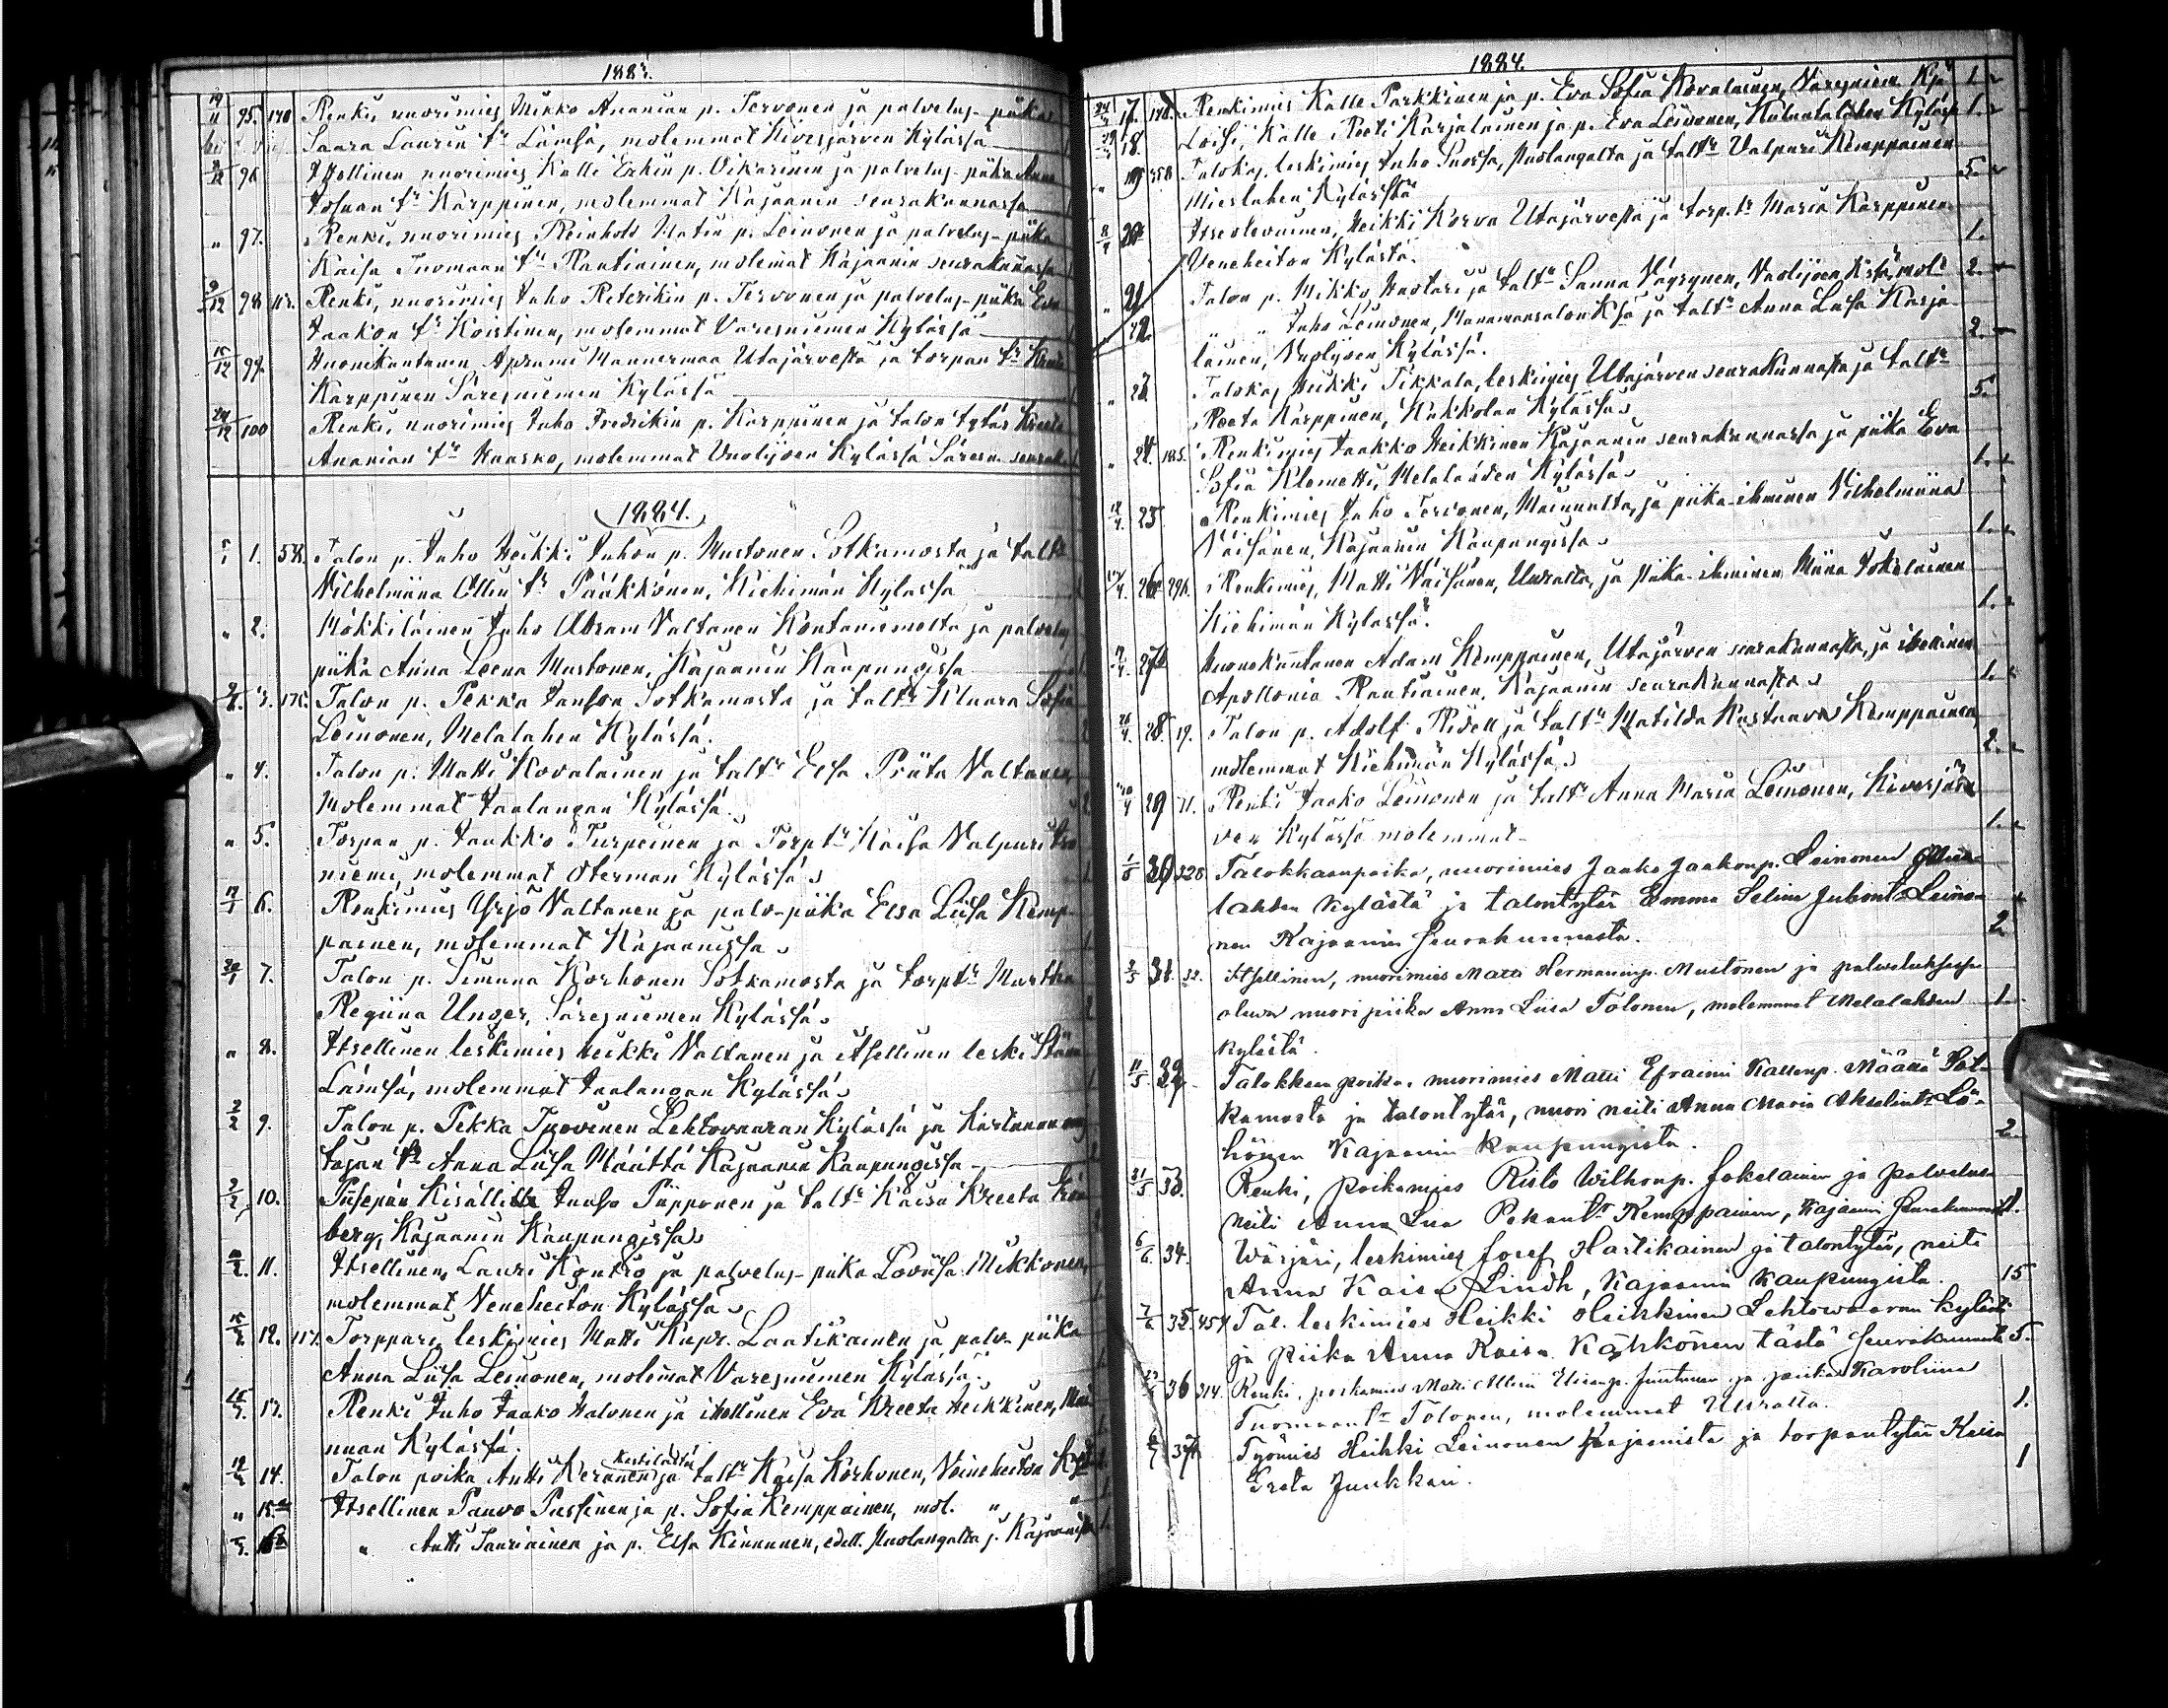 1883.
19/11 95. 170 Renki, nuorimies Mikko Ananian p. Tervonen ja palvelus-piika
Saara Laurin tr Lämsä, molemmat Kivesjärven Kylässä
96 Itsellinen nuorimies Kalle Erkin p. Oikarinen ja palvelus-piika Anna
tr Karppinen, molemmat Kajaanin seurakunnassa
" 97. Renki, nuorimies Reinhold Matin p. Leinonen ja palvelus-piika
Kaisa Tuomaan tr Rautiainen, molemmat Kajaanin seurakunnassa
9/12 98 Renki, nuorimies Juho Petterikin p. Tervonen ja palvelus-piika Eva
Jaakon tr Koistinen, molemmat Varesniemen Kylässä
15/12 99. Huonekuntanen Aprami Mannermaa Utajärveltä ja torpan tr
Karppinen Säresniemen Kylässä
29/12 100 Renki, nuorimies Juho Fredrikin p. Karppinen ja talon tytär Kreeta
Ananian tr Haasko, molemmat Vuolijoen Kylässä Säresn. seurak.
1884.
1. 58. Talon p. Juho Heikki Juhon p. Mustonen Sotkamosta ja taltr
Vilhelmiina Ollin tr Pääkkönen, Kiehimän Kylässä
" 2. Mökkiläinen Juho Abram Valtanen Kontaniemeltä ja palvelus
piika Anna Leena Mustonen, Kajaanin Kaupungissa
3. 176. Talon p. Pekka Sotkamosta ja taltr Kluara Sofia
Leinonen, Melalahen Kylässä.
" 4. Talon p. Matti Kovalainen ja taltr Elsa Priita Valtanen
Molemmat Jaalangan Kylässä.
" 5. Torpan p. Jaakko Turpeinen ja Torptr Kaisa Valpuri
niemi, molemmat Oterman Kylässä.
6. Renkimies Yrjö Valtanen ja palv-piika Elsa Liisa Kemp-
painen, molemmat Kajaanissa.
20/1 7. Talon p. Simuna Korhonen Sotkamosta ja torptr Martha
Regiina Unger, Säresniemen Kylässä.
" 8. Itsellinen leskimies Heikki Valtanen ja itsellinen leski
Lämsä, molemmat Jaalangan Kylässä.
2/2 9. Talon p. Pekka Tuovinen Lehtovaaran Kylässä ja Kartanon
tajan tr Anna Liisa Määttä Kajaanin Kaupungissa
10. Puusepän Kisälli Piipponen ja taltr Kaisa Kreeta
berg, Kajaanin Kaupungissa
11. Itsellinen, Lauri Kontio ja palvelus-piika Loviisa Mikkonen,
molemmat Veneheiton Kylässä
12. 117. Torppari, leskimies Matti Kapr. Laatikainen ja palv. piika
Anna Liisa Leinonen, molemmat Varesniemen Kylässä.
13. Renki Juho Jaako Halonen ja itsellinen Eva Kreeta Heikkinen,
nuan Kylässä.
14. Talon poika Antti Keränen ja taltr Kaisa Korhonen, Veneheiton Kylä
" 15. Itsellinen Paavo Pussinen ja p. Sofia Kemppainen, mol. " "
16 " Antti Tauriainen ja p. Elsa Kinnunen, edell. Puolangalta j. Kajaanista
1884.
17. 170. Renkimies Kalle Parkkinen ja p. Eva Sofia Kovalainen, Varesniem. Kylä 1.
18. Loisi, Kalle Pieti Karjalainen ja p. Eva Leinonen, Kylässä 1.
" 19 358 Talokas, leskimies Juho Suossa, Puolangalta ja taltr Valpuri Kemppainen
Mieslahen Kylässtä 5.
8/4 20 Itseolevainen, Heikki Korva Utajärveltä ja torp. tr Maria Karppinen
Veneheiton Kylästä. 1.
" 21 Talon p. Mikko Huotari ja taltr Sanna Väyrynen, Vuolijoen Ksssä mol. 2.
22. " " Juho Leinonen, Manamansalon Kssä ja taltr Anna Liisa Karja-
lainen, Vuolijoen Kylässä. 2.
" 23 Talokas Heikki Tikkala, leskimies Utajärven seurakunnasta ja taltr
Reeta Karppinen, Hakkolan Kylässä 5.
" 24. 185. Renkimies Jaakko Heikkinen Kajaanin seurakunnassa ja piika Eva
Sofia Klemetti, Melalahden Kylässä 1.
12/4. 25 Renkimies Juho Tervonen, Mainualta, ja piika-ihminen Vilhelmiina
Väisänen, Kajaanin Kaupungissa 1.
26 296. Renkimies, Matti Väisänen, Uuralta, ja piika-ihminen Miina Jokelainen
Kiehimän Kylässä. 1.
27 Huonekuntanen Adam Kemppainen, Utajärven seurakunnasta, ja itsellinen
Apollonia Rautiainen, Kajaanin seurakunnasta 1.
28. 19. Talon p. Adolf Ridell ja taltr Matilda Kustaava Kemppainen,
molemmat Kiehimän Kylässä. 2.
29 71. Renki Jaako Leinonen ja taltr Anna Maria Leinonen, Kivesjär-
ven Kylässä molemmat 1.
1/5 30 328 Talokkaanpoika, nuorimies Jaako Jaakonp. Leinonen
lahden kylästä ja talontytär Emma Selina Juhontr Leino-
nen Kajaanin Seurakunnasta. 2
3/5 31. 32. Itsellinen, nuorimies Matti Hermaninp. Mustonen ja palveluksessa
oleva nuori piika Anna Liisa Tolonen, molemmat Melalahden 1.
kylästä.
11/5 32 Talokkaan poika, nuorimies Matti Efraimi Kallenp. Määttä Sot-
kamosta ja talontytär, nuori neiti Anna Maria Akselintr Lö-
hönen Kajaanin kaupungista. 2.
31/5 33. Renki, poikamies Risto Wilhonp. Jokelainen ja palvelus-
neiti Anna Liisa Pekantr Kemppainen, Kajaanin Seurakunnasta 1.
6/6. 34. Wärjäri, leskimies Josef Hartikainen ja talontytär, neiti
Anna Kaisa Lindh, Kajaanin kaupungista. 15
7/6 35. 454 Tal. leskimies Heikki Heikkinen Lehtowaaran kylästä
ja piika Anna Kaisa Kähkönen tästä Seurakunnasta 5.
36 314. Renki, poikamies Matti Juntunen ja piika Karoliina
Tuomaantr Tolonen, molemmat Uuralta. 1.
37 Työmies Heikki Leinonen Kajaanista ja torpantytär Kaisa
Greta Juukkari. 1